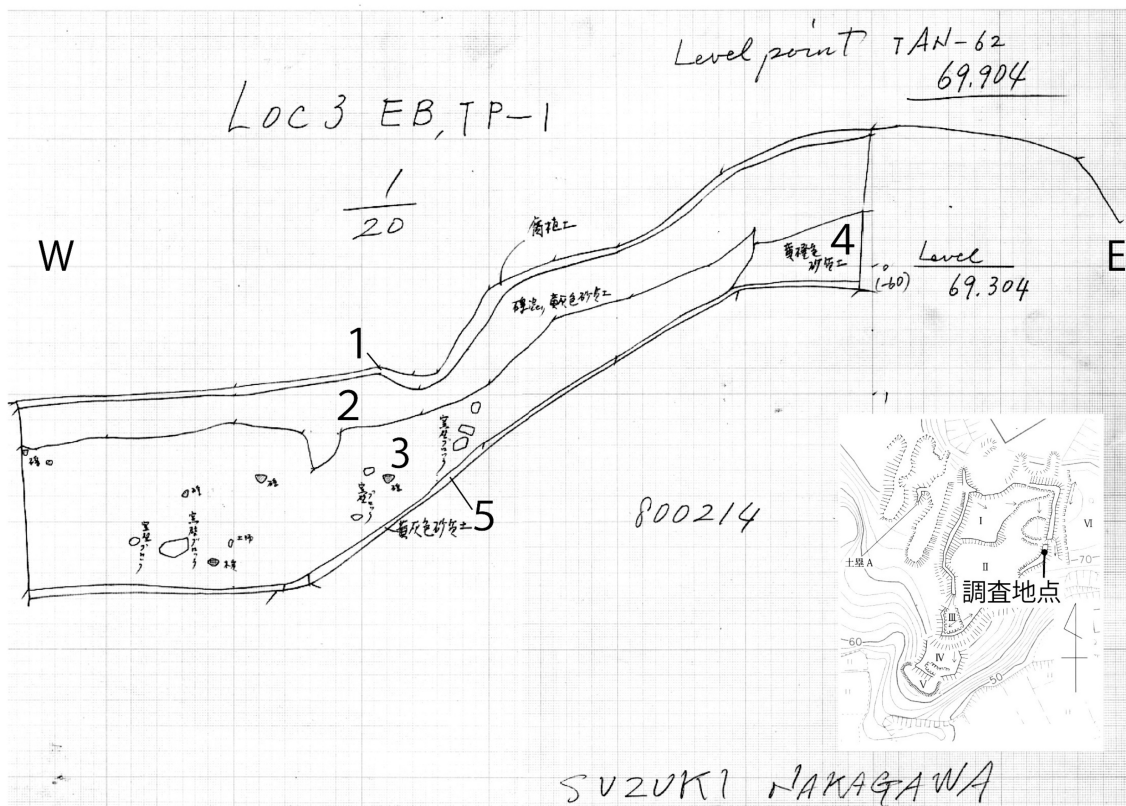 Level point TAN-62
69.904
LOC 3 EB, TP-1
1
20
W
E
腐植土
4
黄橙色
砂質土
0
(-60)
Level
69.304
礫混り黄灰色砂質土
1
2
3
-1
窯壁ブロック
礫
礫
礫
礫
窯壁ブロック
窯壁ブロック
窯壁ブロック
土師
礫
5
黄灰色砂質土
800214
I
II
III
IV
V
VI
土塁A
調査地点
-70
-60
-50
SUZUKI NAKAGAWA